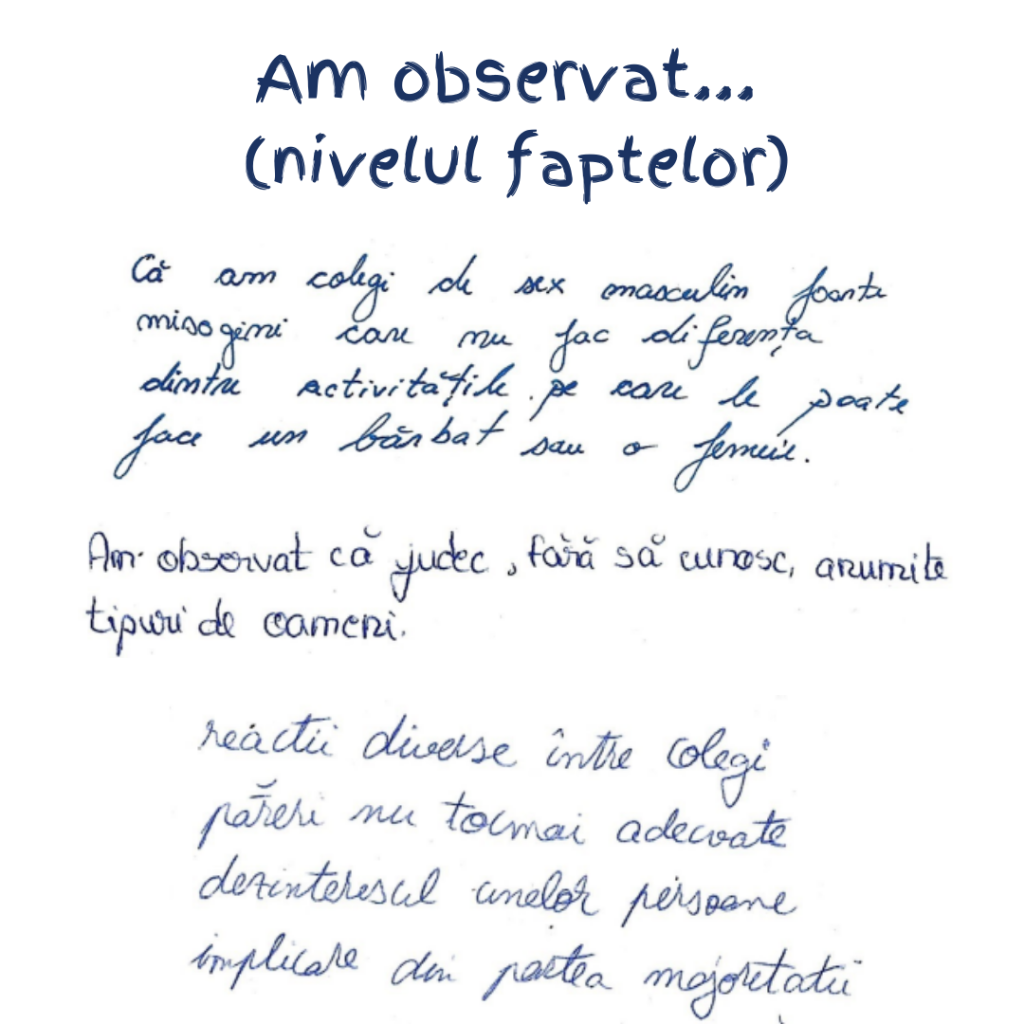 Am observat...
(nivelul faptelor)
Că am colegi de sex masculin foarte
misogini care nu fac diferența
dintre activitățile pe care le poate
face un bărbat sau o femeie.
Am observat că judec, fără să cunosc, anumite
tipuri de oameni.
reactii diverse între colegi
păreri nu tocmai adecvate
dezinteresul unelor persoane
implicare din partea majoritatii